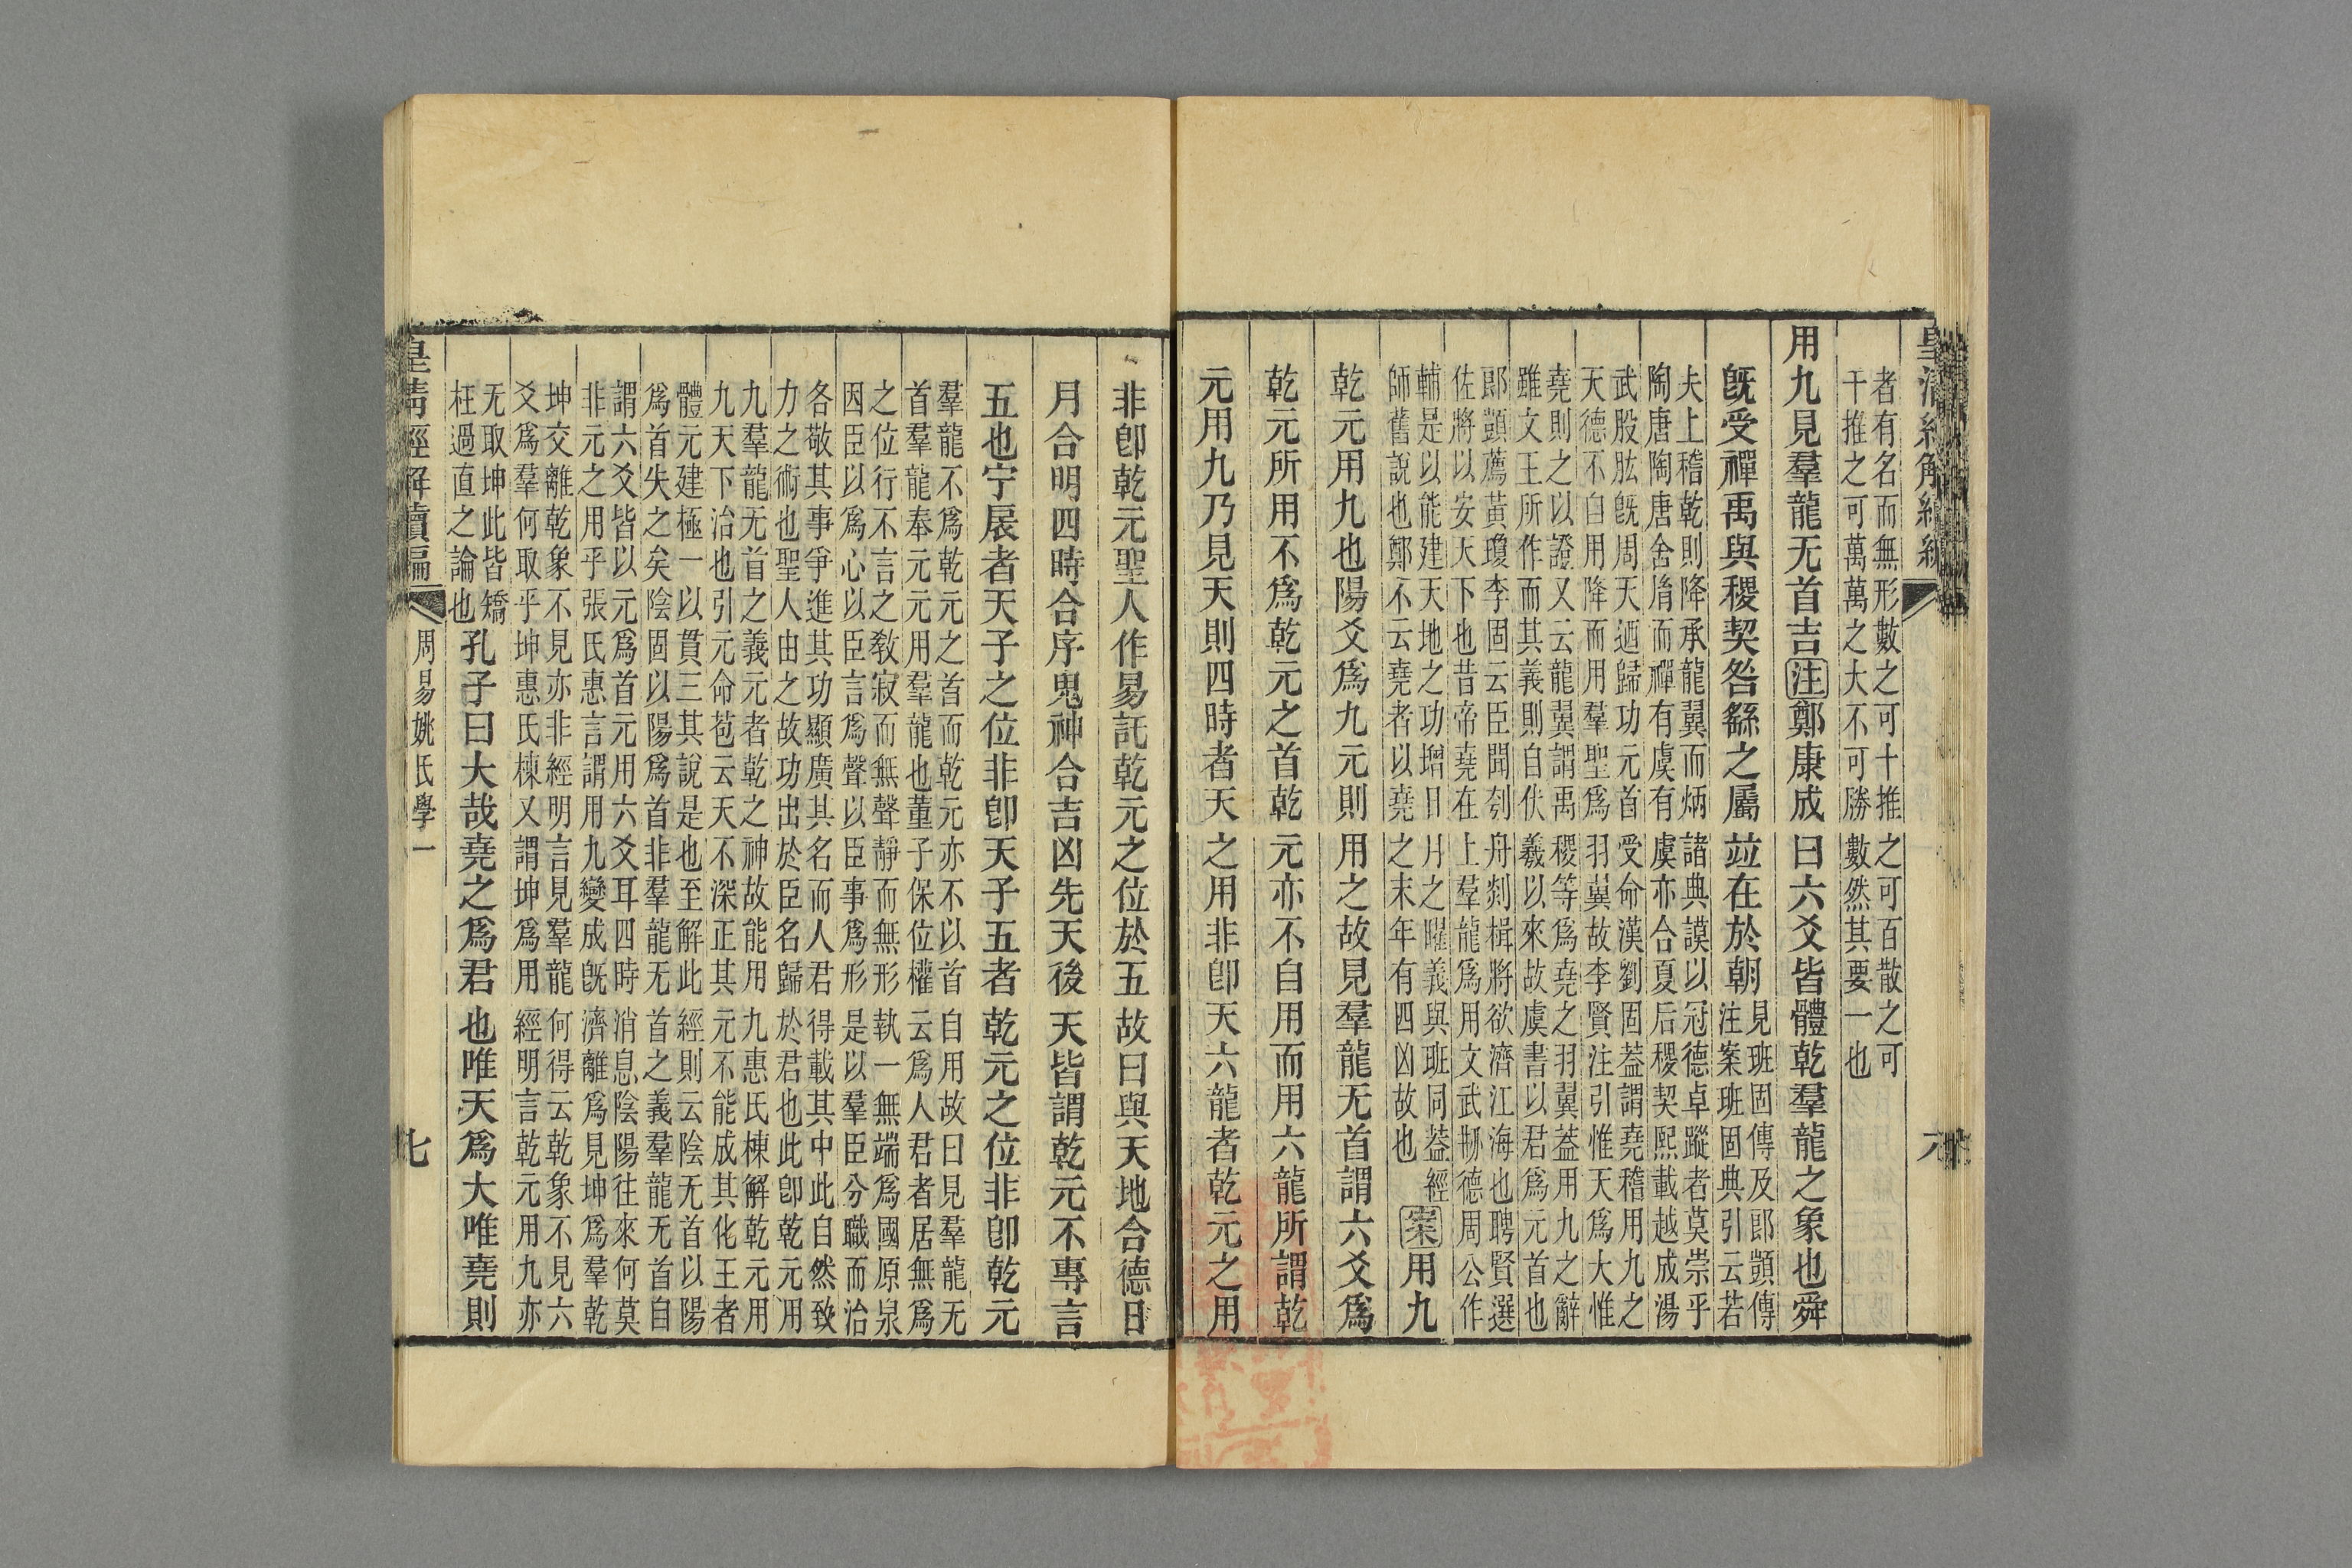 者有名而無形數之可十推之可百散之可
千推之可萬萬之大不可勝數然其要一也
用九見羣龍无首吉注鄭康成曰六爻皆體乾羣龍之象也舜
旣受禪禹與稷契咎繇之屬竝在於朝
見班固傳及郎顗傳
注案班固典引云若
夫上稽乾則降承龍翼而炳諸典謨以冠德卓蹤者莫崇乎
陶唐陶唐舍胤而禪有虞有虞亦合夏后稷契熙載越成湯
武股肱旣周天迺歸功元首受命漢劉固葢謂堯稽用九之
天德不自用降而用羣聖爲羽翼故李賢注引惟天爲大惟
堯則之以證又云龍翼謂禹稷等爲堯之羽翼葢用九之辭
雖文王所作而其義則自伏羲以來故虞書以君爲元首也
郎顗薦黃瓊李固云臣聞刳舟剡楫將欲濟江海也聘賢選
佐將以安天下也昔帝堯在上羣龍爲用文武刱德周公作
輔是以能建天地之功增日月之曜義與班同葢經
師舊說也鄭不云堯者以堯之末年有四凶故也
案用九
乾元用九也陽爻爲九元則用之故見羣龍无首謂六爻爲
乾元所用不爲乾元之首乾元亦不自用而用六龍所謂乾
元用九乃見天則四時者天之用非卽天六龍者乾元之用
非卽乾元聖人作易託乾元之位於五故曰與天地合德日
月合明四時合序鬼神合吉凶先天後天皆謂乾元不專言
五也宁扆者天子之位非卽天子五者乾元之位非卽乾元
羣龍不爲乾元之首而乾元亦不以首自用故曰見羣龍无
首羣龍奉元元用羣龍也董子保位權云爲人君者居無爲
之位行不言之敎寂而無聲靜而無形執一無端爲國原泉
因臣以爲心以臣言爲聲以臣事爲形是以羣臣分職而治
各敬其事爭進其功顯廣其名而人君得載其中此自然致
力之術也聖人由之故功出於臣名歸於君也此卽乾元用
九羣龍无首之義元者乾之神故能用九惠氏棟解乾元用
九天下治也引元命苞云天不深正其元不能成其化王者
體元建極一以貫三其說是也至解此經則云陰无首以陽
爲首失之矣陰固以陽爲首非羣龍无首之義羣龍无首自
謂六爻皆以元爲首元用六爻耳四時消息陰陽往來何莫
非元之用乎張氏惠言謂用九變成旣濟離爲見坤爲羣乾
坤交離乾象不見亦非經明言見羣龍何得云乾象不見六
爻爲羣何取乎坤惠氏棟又謂坤爲用經明言乾元用九亦
无取坤此皆矯
枉過直之論也
孔子曰大哉堯之爲君也唯天爲大唯堯則
皇清經解續編
周易姚氏學一
七